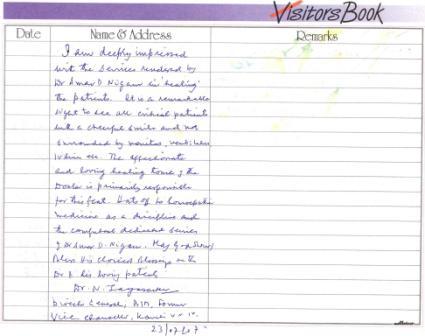 Visitors Book
Date Name & Address Remarks
I am deeply impressed
with the services rendered by
Dr Amar D. Nigam in healing
the patients. It is a remarkable
sight to see all critical patients
with a cheerful smile and not
surrounded by monitors, ventilators,
The affectionate
and loving healing touch of the
Doctor is primarily responsible
for this feat. Hats off to homoeopathic
medicine as a discipline and
the dedicated service
of Dr Amar D. Nigam. May God
Bless His choicest Blessings on the
Dr & his loving patients
Dr. N.
Director General, Former
Vice Chancellor,